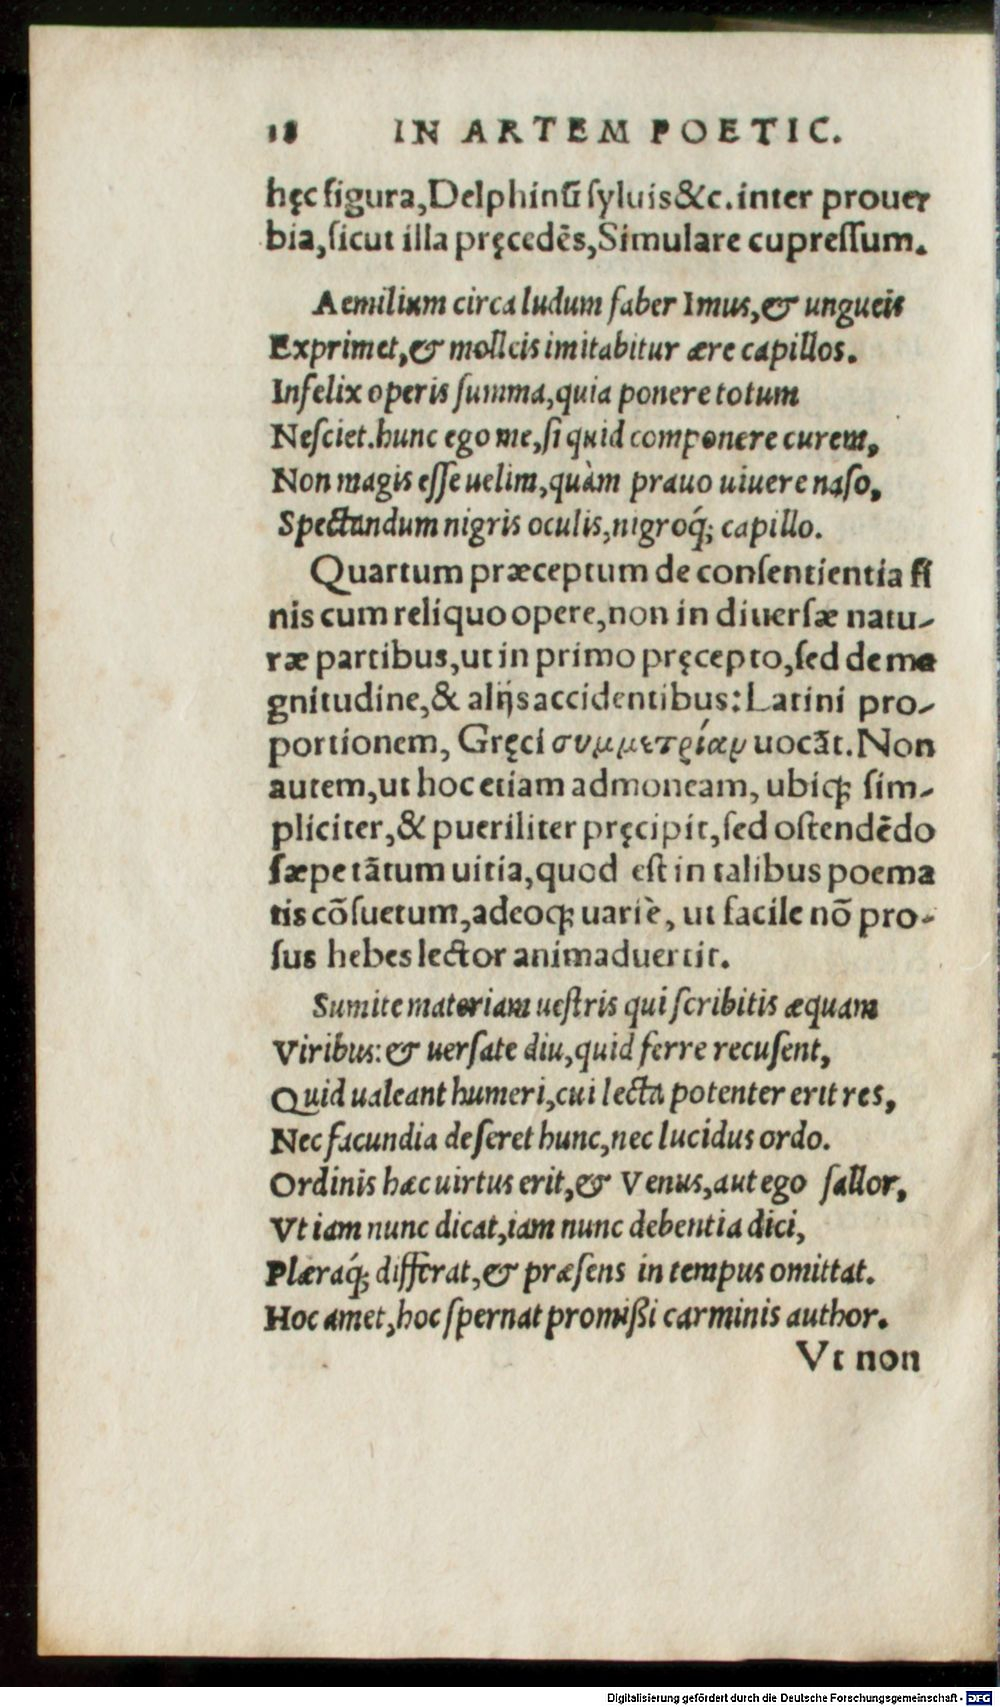 18 IN ARTEM POETIC.
hęc figura, Delphinū syluis &c. inter prouer
bia, sicut illa pręcedēs, Simulare cupressum.
Aemilium circa ludum faber Imus, & ungueis
Exprimet, & molleis imitabitur ære capillos.
Infelix operis summa, quia ponere totum
Nesciet. hunc ego me, si quid componere curem,
Non magis esse uelim, quàm prauo uiuere naso,
Spectandum nigris oculis, nigroq́; capillo.
Quartum præceptum de consentientia fi
nis cum reliquo opere, non in diuersæ natu-
ræ partibus, ut in primo pręcepto, sed de ma
gnitudine, & alijs accidentibus: Latini pro-
portionem, Gręci συμμετρίαν uocāt. Non
autem, ut hoc etiam admoneam, ubiq; sim-
pliciter, & pueriliter pręcipit, sed ostendēdo
sæpe tātum uitia, quod est in talibus poema
tis cōsuetum, adeoq; uariè, ut facile nō pro-
sus hebes lector animaduertit.
Sumite materiam uestris qui scribitis æquam
Viribus: & uersate diu, quid ferre recusent,
Quid ualeant humeri, cui lecta potenter erit res,
Nec facundia deseret hunc, nec lucidus ordo.
Ordinis hæc uirtus erit, & Venus, aut ego fallor,
Vt iam nunc dicat, iam nunc debentia dici,
Plæraq́; differat, & præsens in tempus omittat.
Hoc amet, hoc spernat promißi carminis author.
Vt non
Digitalisierung gefördert durch die Deutsche Forschungsgemeinschaft - DFG